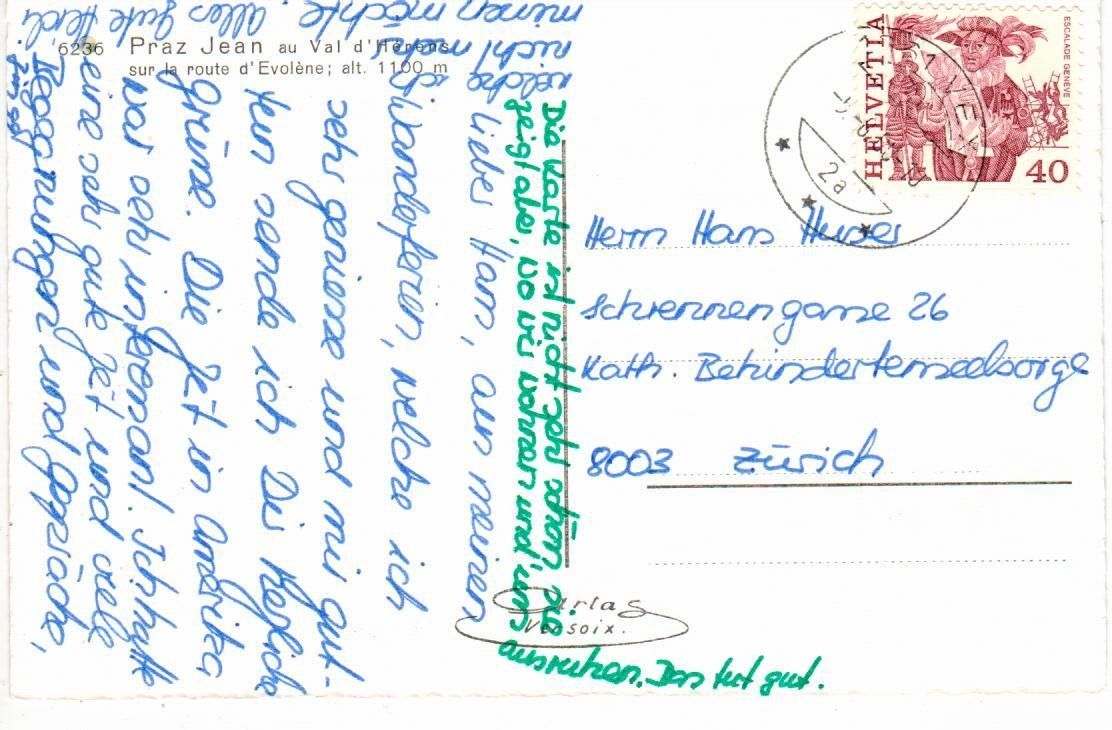 6236 Praz Jean au Val d'Hérens
sur la route d'Evolène; alt. 1100 m
Lieber Hans, aus meinen
Wanderferien, welche ich
sehr geniesse und mir gut-
tun sende ich Dir herzliche
Grüsse. Die Zeit in Amerika
war sehr interessant. Ich hatte
eine sehr gute Zeit und viele
Begegnungen und Gespräche,
welche ich
nicht mehr
missen möchte. Alles Gute Heidi
Die Karte ist nicht sehr schön, sie
zeigt aber, wo wir wohnen und uns
ausruhen. Das tut gut.
HELVETIA
ESCALADE GENÈVE
40
2a
Herrn Hans Huser
Schrennengasse 26
Kath. Behindertenseelsorge
8003 Zürich
Versoix.